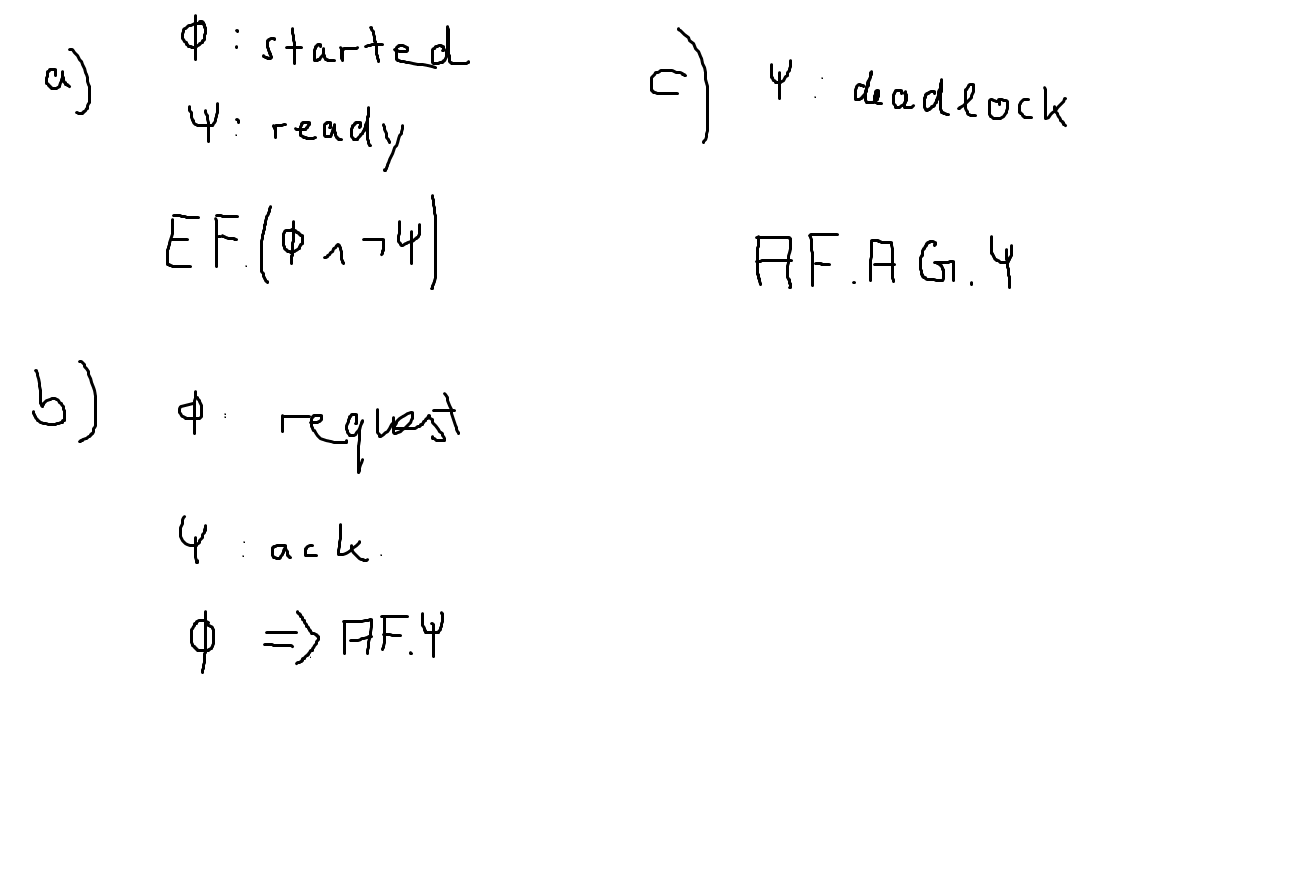 a) Φ : started
Ψ : ready
EF.(Φ ∧ ¬Ψ)
b) Φ : request
Ψ : ack.
Φ => AF.Ψ
c) Ψ : deadlock
AF.AG.Ψ